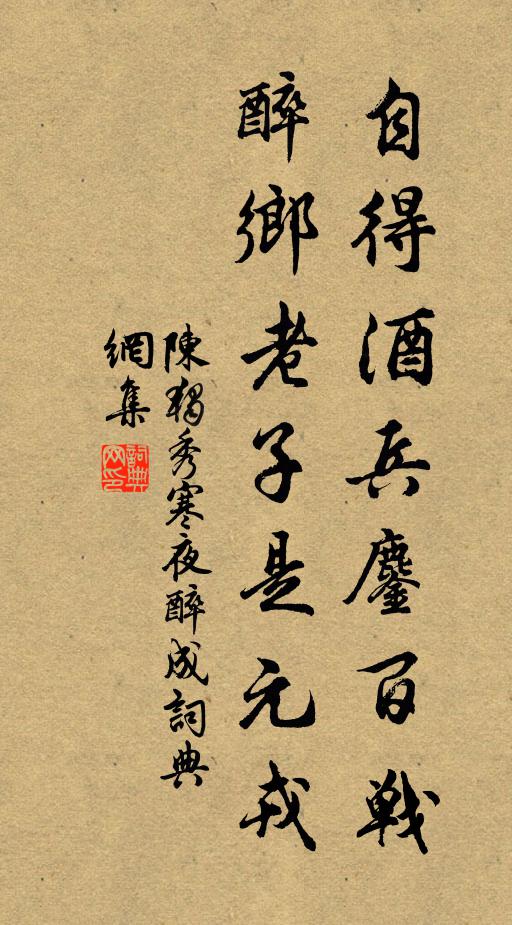 自得酒兵鏖百戰
醉鄉老子是元戎
陳獨秀寒夜醉成詞典
網集
詞典
网印